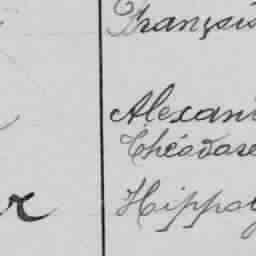 Français
Alexan
Théodore
r Hippoly